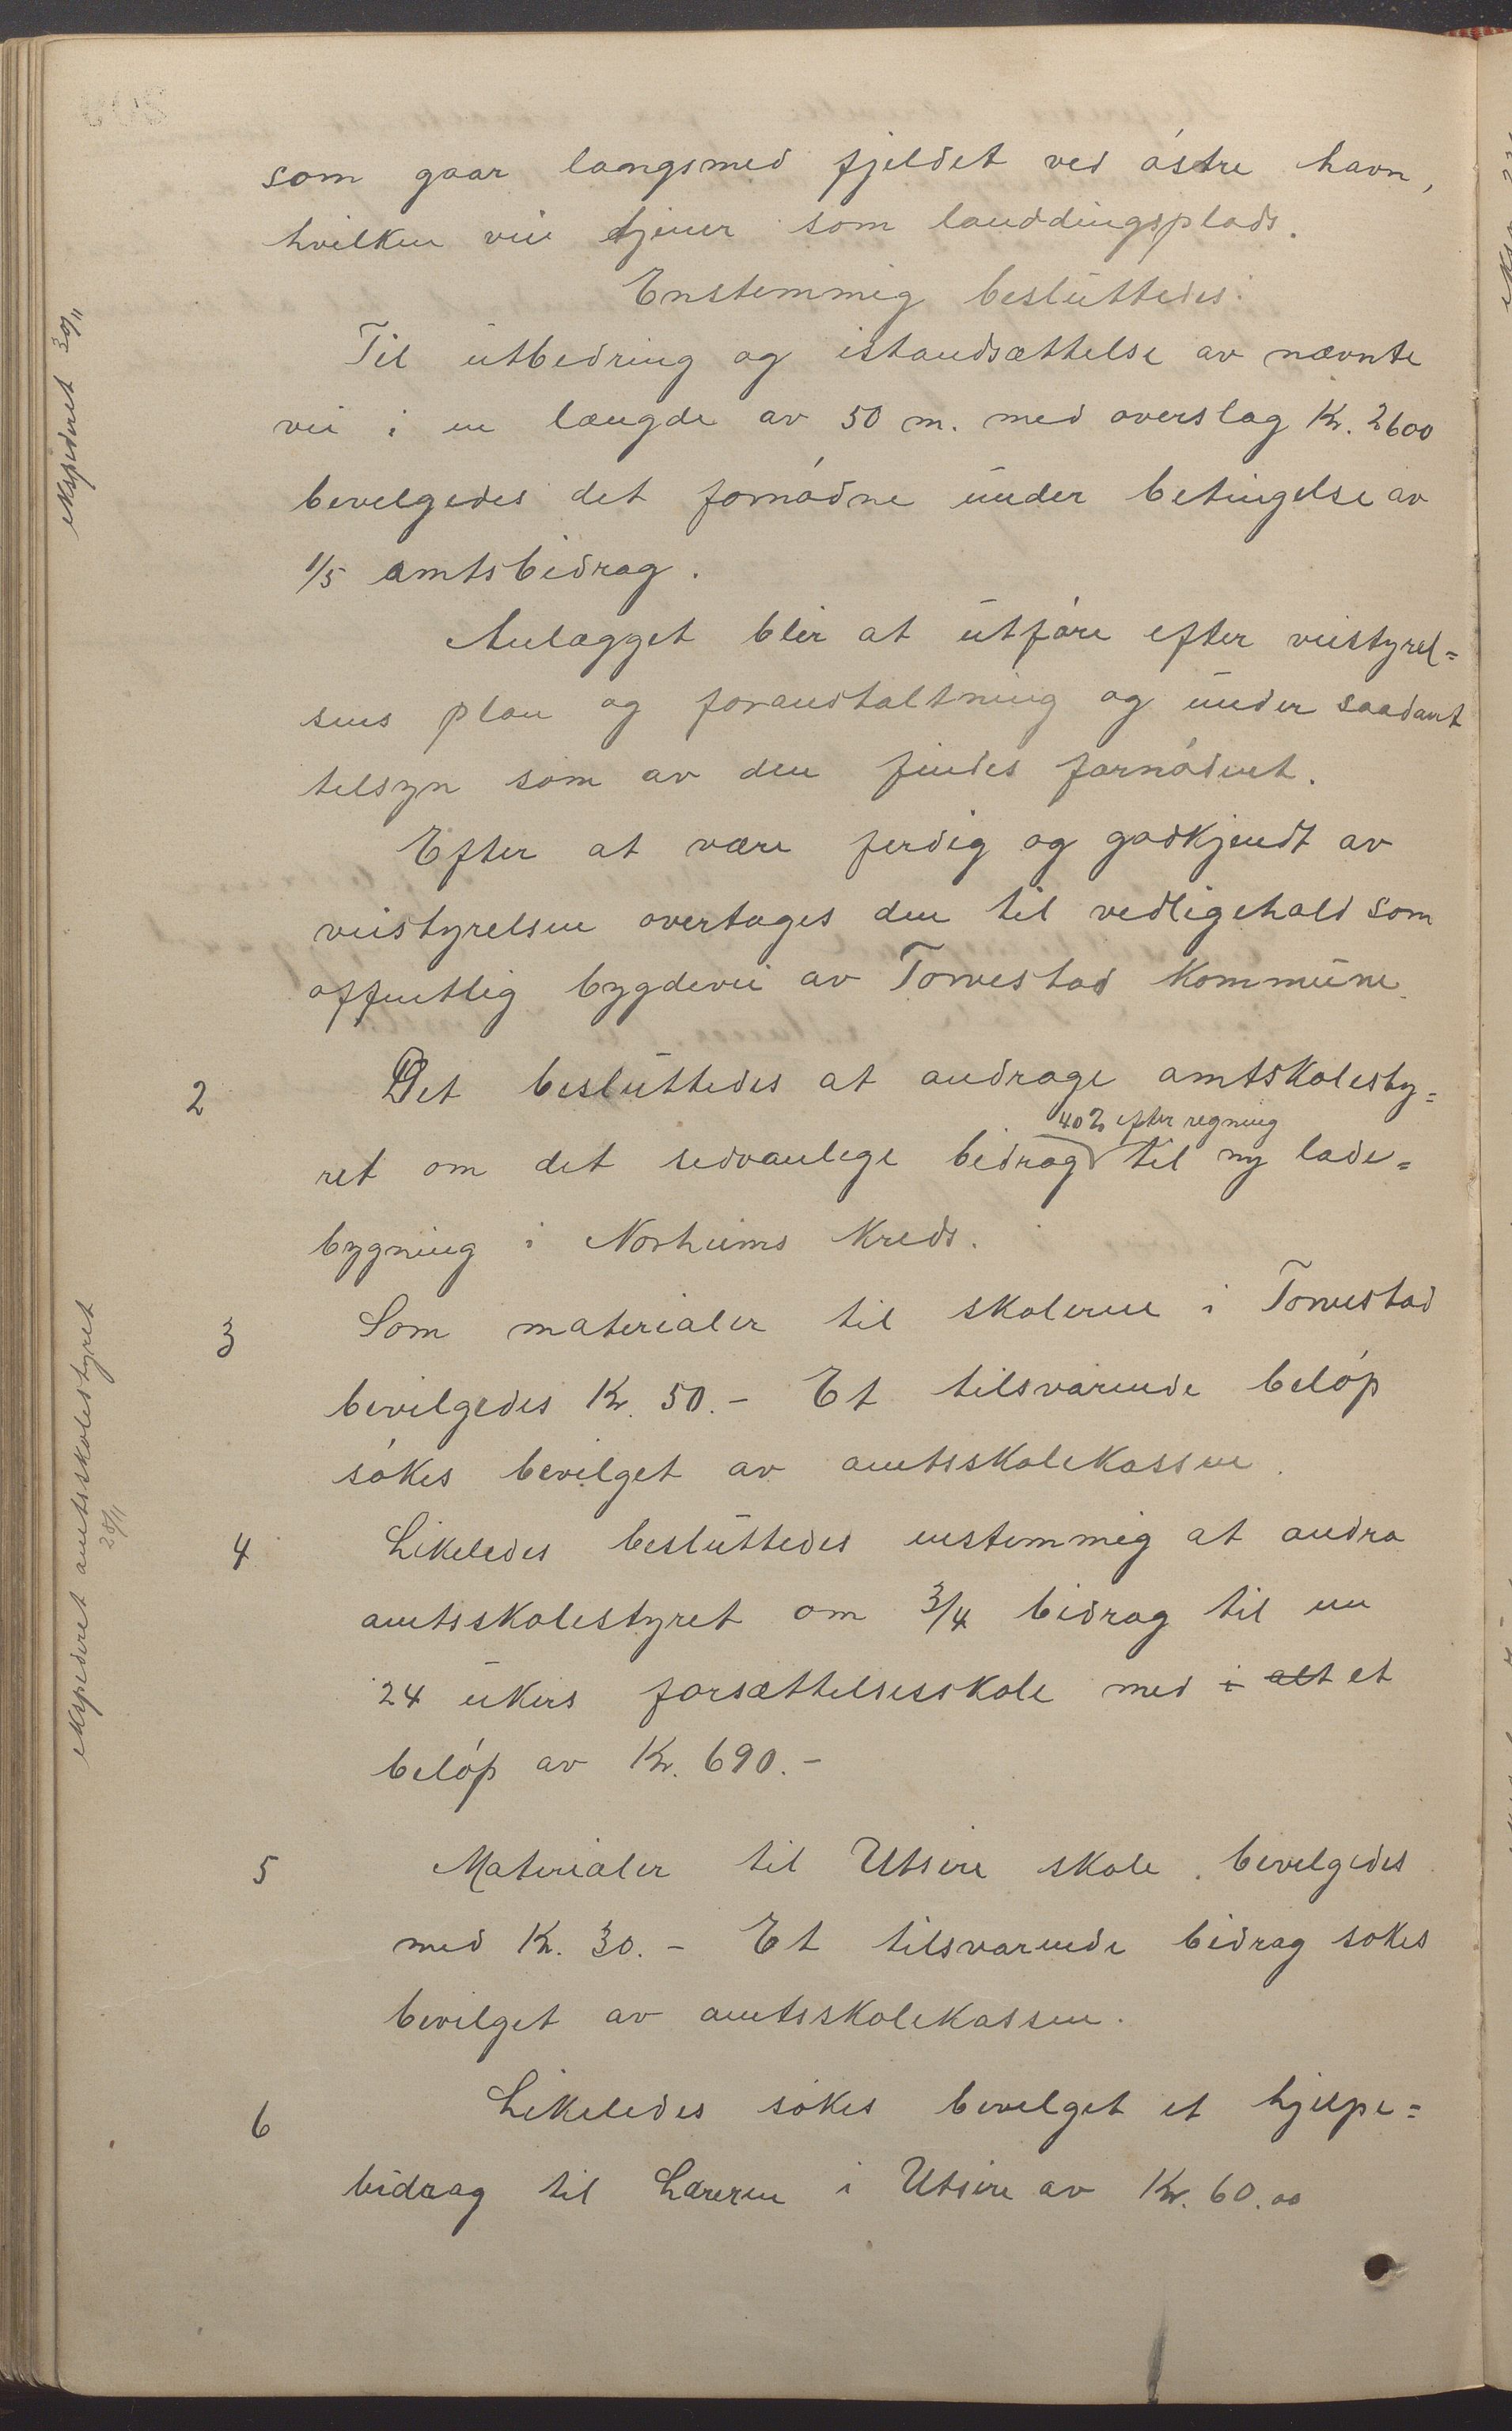 som gaar langsmed fjeldet ved østre havn,
hvilken vei tjener som landdingsplads.
Enstemmig besluttedes:
ekspederet 30/11
Til utbedring og istandsættelse av nævnte
vei i en længde av 50 m. med overslag Kr. 2600
bevilgedes det fornødne under betingelse av
1/5 amtsbidrag.
Anlægget blir at utføre efter veistyrel=
sens plan og foranstaltning og under saadant
tilsyn som av den findes fornødent.
Efter at være ferdig og godkjendt av
veistyrelsen overtages den til vedligehold som
offentlig bygdevei av Torvestad Kommune.
2 Det besluttedes at andrage amtskolesty=
ret om det sedvanlige bidrag 40% efter regning til ny lade=
bygning i Norheims Kreds.
ekspederet amtsskolestyret 28/11
3 Som materialer til skolerne i Torvestad
bevilgedes Kr. 50.- Et tilsvarende beløp
søkes bevilget av amtsskolekassen.
4 Likeledes besluttedes enstemmig at andra
amtsskolestyret om 3/4 bidrag til en
24 ukers forsættelsesskole med i alt et
beløp av Kr. 690.-
5 Materialer til Utsire skole bevilgedes
med Kr. 30.- Et tilsvarende bidrag søkes
bevilget av amtsskolekassen.
6 Likeledes søkes bevilget et hjelpe=
bidrag til Læreren i Utsire av Kr. 60.00